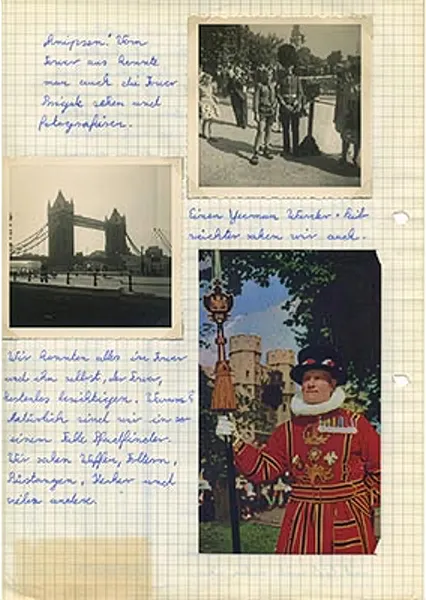 knipsen." Vom
Tower aus konnte
man auch die Tower
Bridge sehen und
fotografieren.
Einen Yeoman Warder = Leib-
wächter sahen wir auch.
Wir konnten alles im Tower
und ihn selbst, den Tower,
kostenlos besichtigen. Warum?
Natürlich sind wir in so
einem Falle Pfadfinder.
Wir sahen Waffen, Foltern,
Rüstungen, Kerker und
vieles andere.